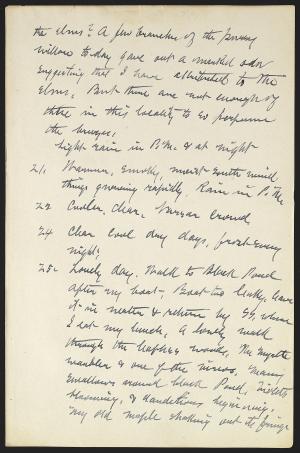 the elms? A few branches of the
willow to-day gave out a musked odor
suggesting that I have attributed to the
elms. But there are not enough of
them in this locality to so perfume
the breezes.
Light rain in P.M. & at night
21. Warmer, smoky, moist south wind
things growing rapidly. Rain in P.M.
22 Cooler, clear,
24 Clear cool dry days, frost every
night;
25. Lovely day. Walk to Black Pond
after my boat, Boat too leaky, leave
it in water & return by where
I eat my lunch, a lovely walk
through the leafless woods. The myrtle
warbler & one of the vireos. Many
swallows around Black Pond, Violets
blooming, & dandelions beginning.
My old maple shaking out its fringe